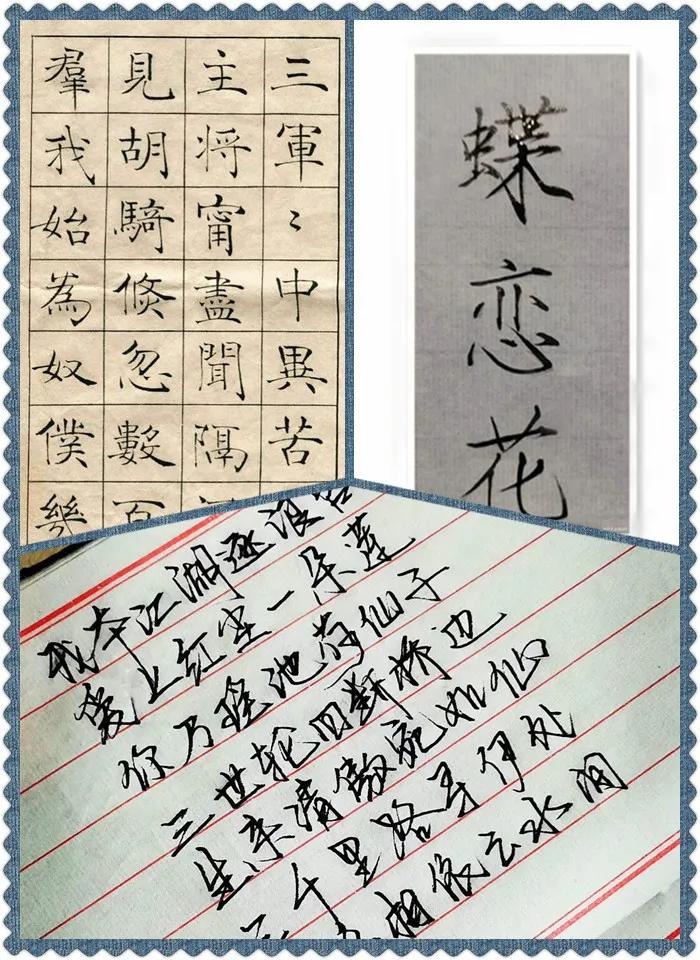 三軍〻中異苦
主将甯盡聞隔
見胡騎倐忽數百
羣我始為奴僕幾
蝶恋花
我本江湖逐浪客
爱上红尘一朵莲
你乃瑶池荷仙子
三世轮回断桥边
生来清傲宛如仙
三千里路寻伊处
相依云水间